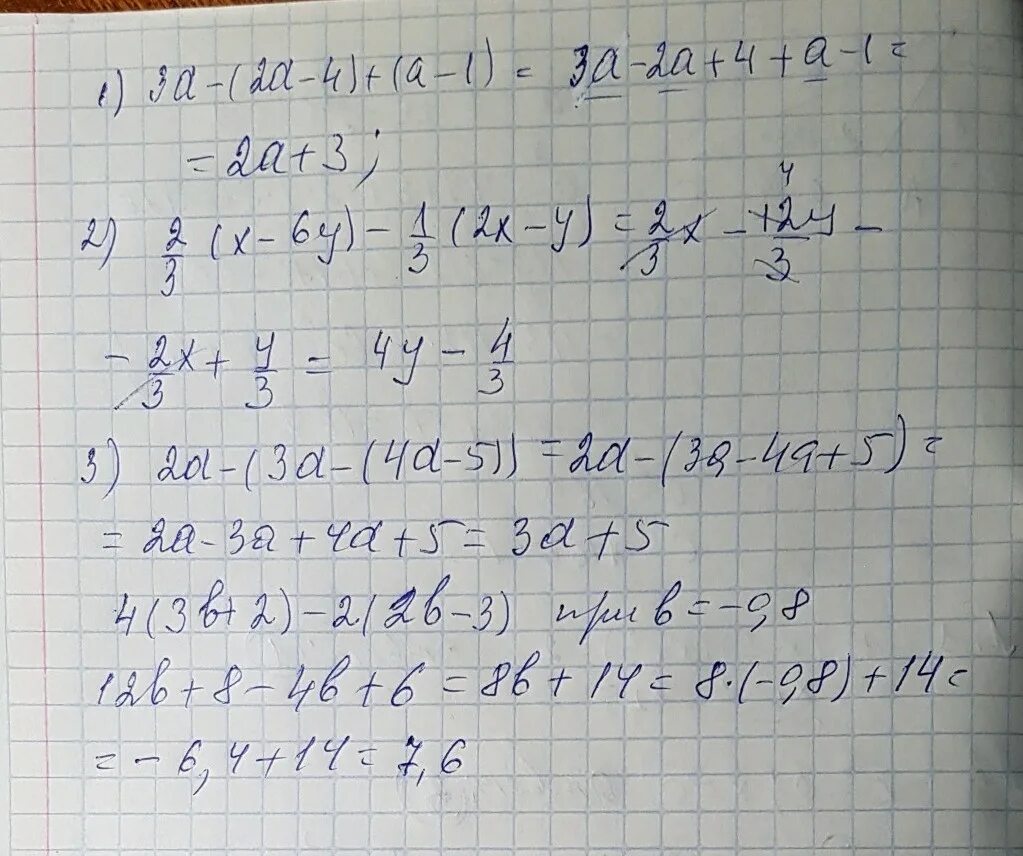 1) 3a-(2a-4)+(a-1) = 3a-2a+4+a-1=
=2a+3;
2) 2/3 (x-6y) - 1/3 (2x-y) = 2/3 x - 12y/3 - 4
- 2/3 x + y/3 = 4y - 4/3
3) 2a-(3a-(4a-5)) = 2a-(3a-4a+5)=
= 2a-3a+4a+5=3a+5
4(3b+2)-2(2b-3) при b=-0,8
12b+8-4b+6=8b+14=8·(-0,8)+14=
=-6,4+14=7,6